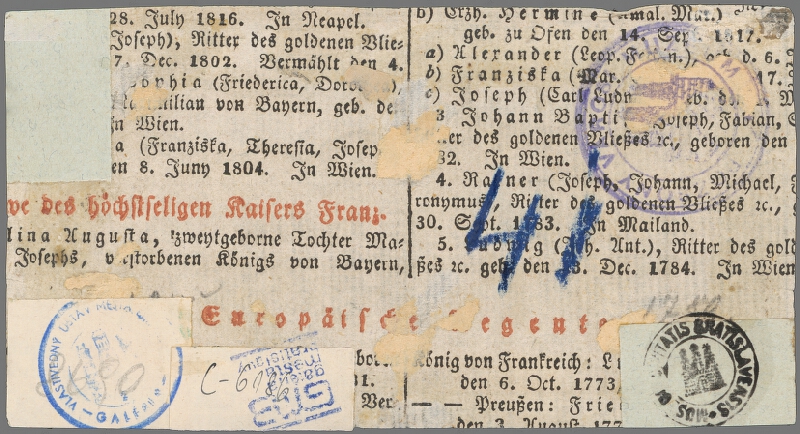 28. July 1816. In Neapel.
Joseph), Ritter des goldenen Vlie-
7. Dec. 1802. Vermählt den 4.
Sophia (Friederica,
von Bayern, geb. de
In Wien.
a (Franziska, Theresia, Josep
en 8. Juny 1804. In Wien.
we des höchstseligen Kaisers Franz.
lina Augusta, zweytgeborne Tochter Ma-
Josephs, verstorbenen Königs von Bayern,
b) Erzh. Hermine (Amal. Mar.)
geb. zu Ofen den 14. Sept. 1817.
a) Alexander (Leop. d. 6.
b) Franziska (Mar. 17.
c) Joseph (Carl Ludw
3 Johann Bapti Joseph, Fabian,
des goldenen Vließes ꝛc., geboren den
82. In Wien.
4. Rainer (Joseph, Johann, Michael,
ronymus), Ritter des goldenen Vließes ꝛc.,
30. Sept. 1783. In Mailand.
5. Ludwig (Joh. Ant.), Ritter des gold
ßes ꝛc. geb. den 13. Dec. 1784. In Wien
41
Europäische Regente
VLASTIVEDNÝ
C-6
galéria
mesta
bratislavy
GMB
1.
Ver-
König von Frankreich:
den 6. Oct. 1773
— — Preußen: Frie
den 3. August 177
CIVITATIS BRATISLAVENSIS • MUS